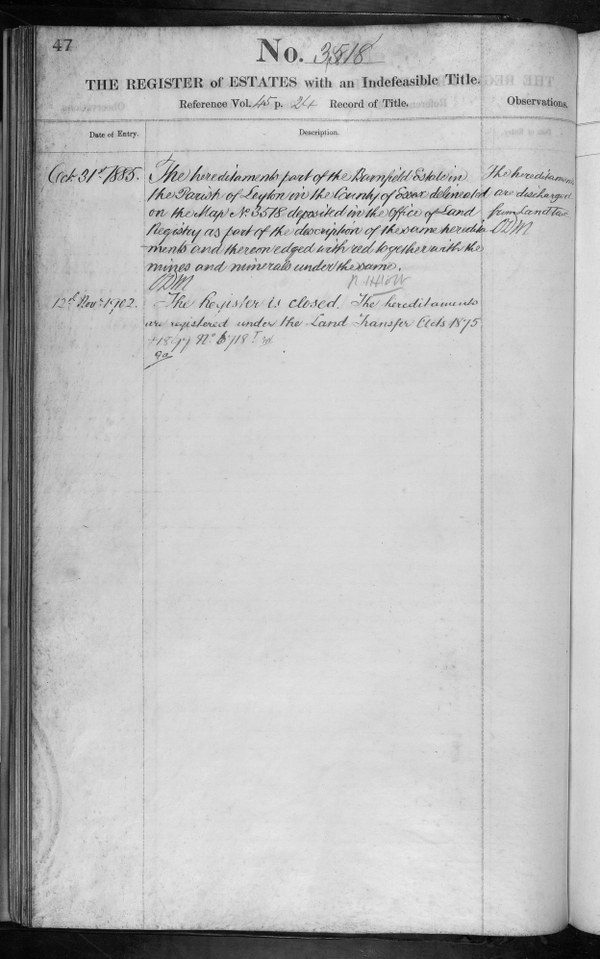 47
No. 3518
THE REGISTER of ESTATES with an Indefeasible Title.
Reference Vol. 45 p. 24 Record of Title.
Observations.
Date of Entry.
Description.
Oct. 31st 1885.
The hereditaments part of the Barnfield Estate in
the Parish of Leyton in the County of Essex delineated
on the Map No 3518 deposited in the Office of Land
Registry as part of the description of the same heredita
ments and thereon edged with red together with the
mines and minerals under the same.
The hereditaments
are discharged
from Land Tax
12th Novr 1902.
The Register is closed. The hereditaments
are registered under the Land Transfer Acts 1875